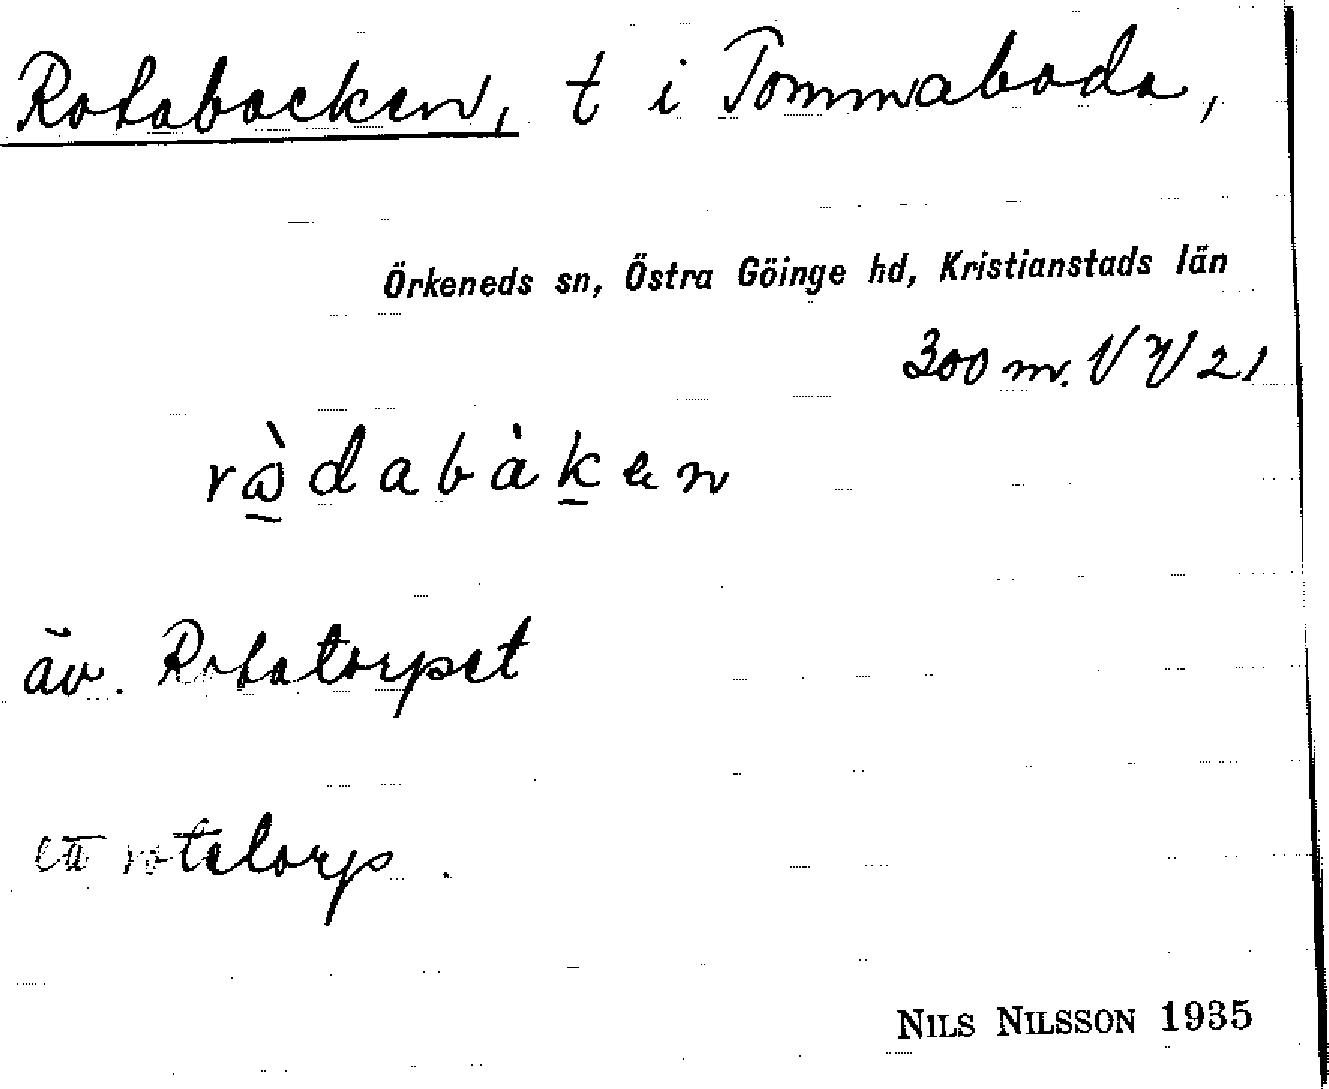 Rotabacken, t i Tommaboda,
Örkeneds sn, Östra Göinge hd, Kristianstads län
300 m. V
rådabàken
äv. Rotatorpet
rotetorp.
NILS NILSSON 1935